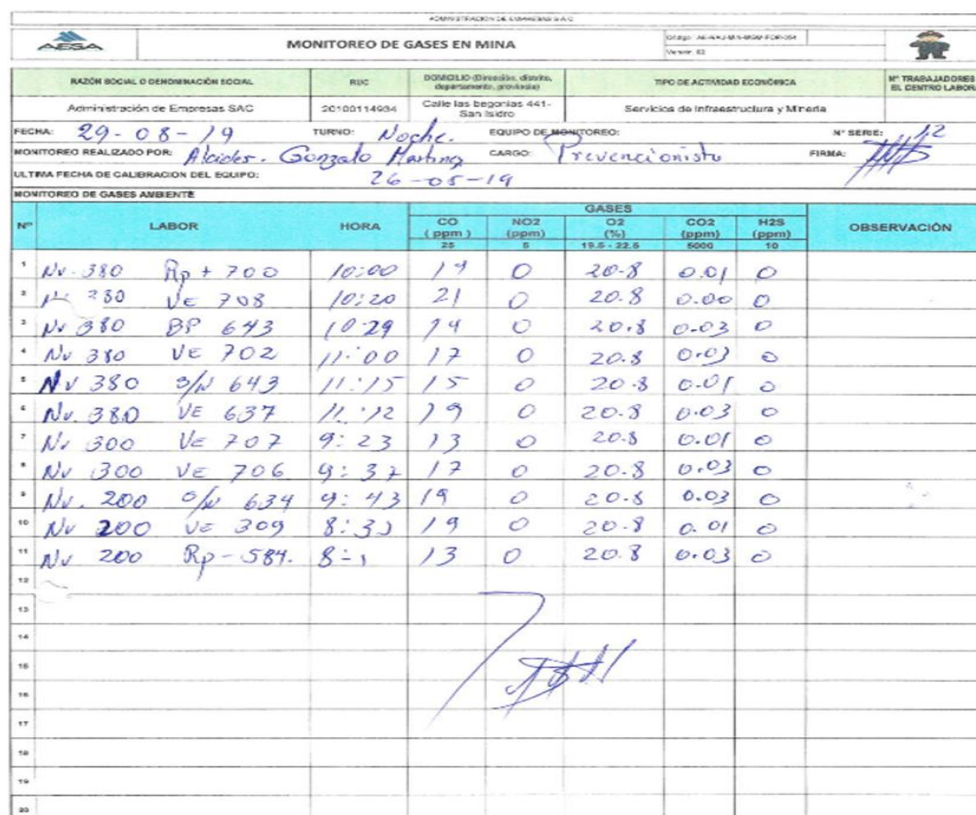 ADMINISTRACION DE EMPRESAS S.A.C
AESA
MONITOREO DE GASES EN MINA
RAZÓN SOCIAL O DENOMINACIÓN SOCIAL RUC DOMICILIO (Dirección, distrito, departamento, provincia) TIPO DE ACTIVIDAD ECONÓMICA N° TRABAJADORES EL CENTRO LABOR
Administración de Empresas SAC 20100114934 Calle las begonias 441-San Isidro Servicios de Infraestructura y Minería
FECHA: 29-08-19 TURNO: Noche. EQUIPO DE MONITOREO: N° SERIE: 12
MONITOREO REALIZADO POR: Alcides. Gonzalo Martinez CARGO: Prevencionista FIRMA:
ULTIMA FECHA DE CALIBRACION DEL EQUIPO: 26-05-19
MONITOREO DE GASES AMBIENTE
GASES
N° LABOR HORA CO (ppm) NO2 (ppm) O2 (%) CO2 (ppm) H2S (ppm) OBSERVACIÓN
25 5 19.5 - 22.5 5000 10
1 Nv. 380 Rp + 700 10:00 19 0 20.8 0.01 0
2 Nv 380 VE 708 10:20 21 0 20.8 0.00 0
3 Nv 380 BP 643 10:29 14 0 20.8 0.03 0
4 Nv 380 VE 702 11:00 17 0 20.8 0.03 0
5 Nv 380 S/N 643 11:15 15 0 20.8 0.01 0
6 Nv. 380 VE 637 11:12 19 0 20.8 0.03 0
7 Nv 300 VE 707 9:23 13 0 20.8 0.01 0
8 Nv 300 VE 706 9:37 17 0 20.8 0.03 0
9 Nv. 200 S/N 634 9:43 19 0 20.8 0.03 0
10 Nv 200 VE 309 8:33 19 0 20.8 0.01 0
11 Nv 200 Rp - 584. 13 0 20.8 0.03 0
12
13
14
15
16
17
18
19
20